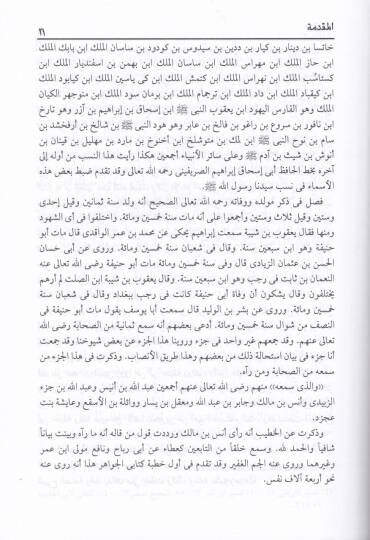 المقدمة ٢١
خانسا بن دينار بن كيار بن ددين بن سيدوس بن كودود بن ساسان الملك ابن بابك الملك
ابن حاز الملك ابن مهراس الملك ابن ساسان الملك ابن بهمن بن اسفنديار الملك ابن
كستاسب الملك ابن نهراس الملك ابن كتمش الملك ابن كى ياسين الملك ابن كيابود الملك
ابن كيقباد الملك ابن داد الملك ابن ترجمام الملك ابن برمان سود الملك ابن منوجهر الكيان
الملك وهو الفارس اليهود ابن يعقوب النبي ﷺ ابن إسحاق بن إبراهيم بن آزر وهو تارخ
ابن نافور بن سروع بن راغو بن فالخ بن عابر وهو هود النبي ﷺ بن شالخ بن أرفخشد بن
سام بن نوح النبي ﷺ ابن لمك بن متوشلخ ابن أخنوخ بن مارد بن مهليل بن قينان بن
أنوش بن شيث بن آدم ﷺ وعلى سائر الأنبياء أجمعين هكذا رأيت هذا النسب من أوله إلى
آخره بخط الحافظ أبي إسحاق إبراهيم الصريفيني رحمه الله تعالى وقد تقدم ضبط بعض هذه
الأسماء في نسب سيدنا رسول الله ﷺ.
فصل في ذكر مولده ووفاته رحمه الله تعالى الصحيح أنه ولد سنة ثمانين وقيل إحدى
وستين وقيل ثلاث وستين وأجمعوا على أنه مات سنة خمسين ومائة. واختلفوا في أى الشهود
ومنها فقال يعقوب بن شيبة سمعت إبراهيم يحكى عن محمد بن عمر الواقدى قال مات أبو
حنيفة وهو ابن سبعين سنة. وقال في شعبان سنة خمسين ومائة. وروى عن أبي حسان
الحسن بن عثمان الزيادى قال وفى سنة خمسين ومائة مات أبو حنيفة رضى الله تعالى عنه
النعمان بن ثابت في رجب وهو ابن سبعين سنة. وقال يعقوب بن شيبة ابن الصلت لم أرهم
يختلفون وقال يشكون أن وفاة أبى حنيفة كانت في رجب ببغداد وقال في شعبان سنة
خمسين ومائة. وروى عن بشر بن الوليد قال سمعت أبا يوسف يقول مات أبو حنيفة فى
النصف من شوال سنة خمسين ومائة. أدعى بعضهم أنه سمع ثمانية من الصحابة رضى الله
تعالى عنهم. وقد جمعهم غير واحد فى جزء وروينا هذا الجزء عن بعض شيوخنا وقد جمعت
أنا جزء في بيان استحالة ذلك من بعضهم وهذا طريق الأنصاب. وذكرت في هذا الجزء من
سمعه من الصحابة ومن رآه.
«والذى سمعه» منهم رضى الله تعالى عنهم أجمعين عبد الله بن أنيس وعبد الله بن جزء
الزبيدى وأنس بن مالك وجابر بن عبد الله ومعقل بن يسار وواثلة بن الأسقع وعايشة بنت
عجرد.
وذكرت عن الخطيب أنه رأى أنس بن مالك ورددت قول من قاله أنه ما رآه وبينت بياناً
شافياً والحمد لله. وسمع خلقاً من التابعين كعطاء بن أبى رباح ونافع مولى ابن عمر
وغيرهما وروى عنه الجم الغفير وقد تقدم فى أول خطبة كتابى الجواهر هذا أنه روى عنه
نحو أربعة آلاف نفس.